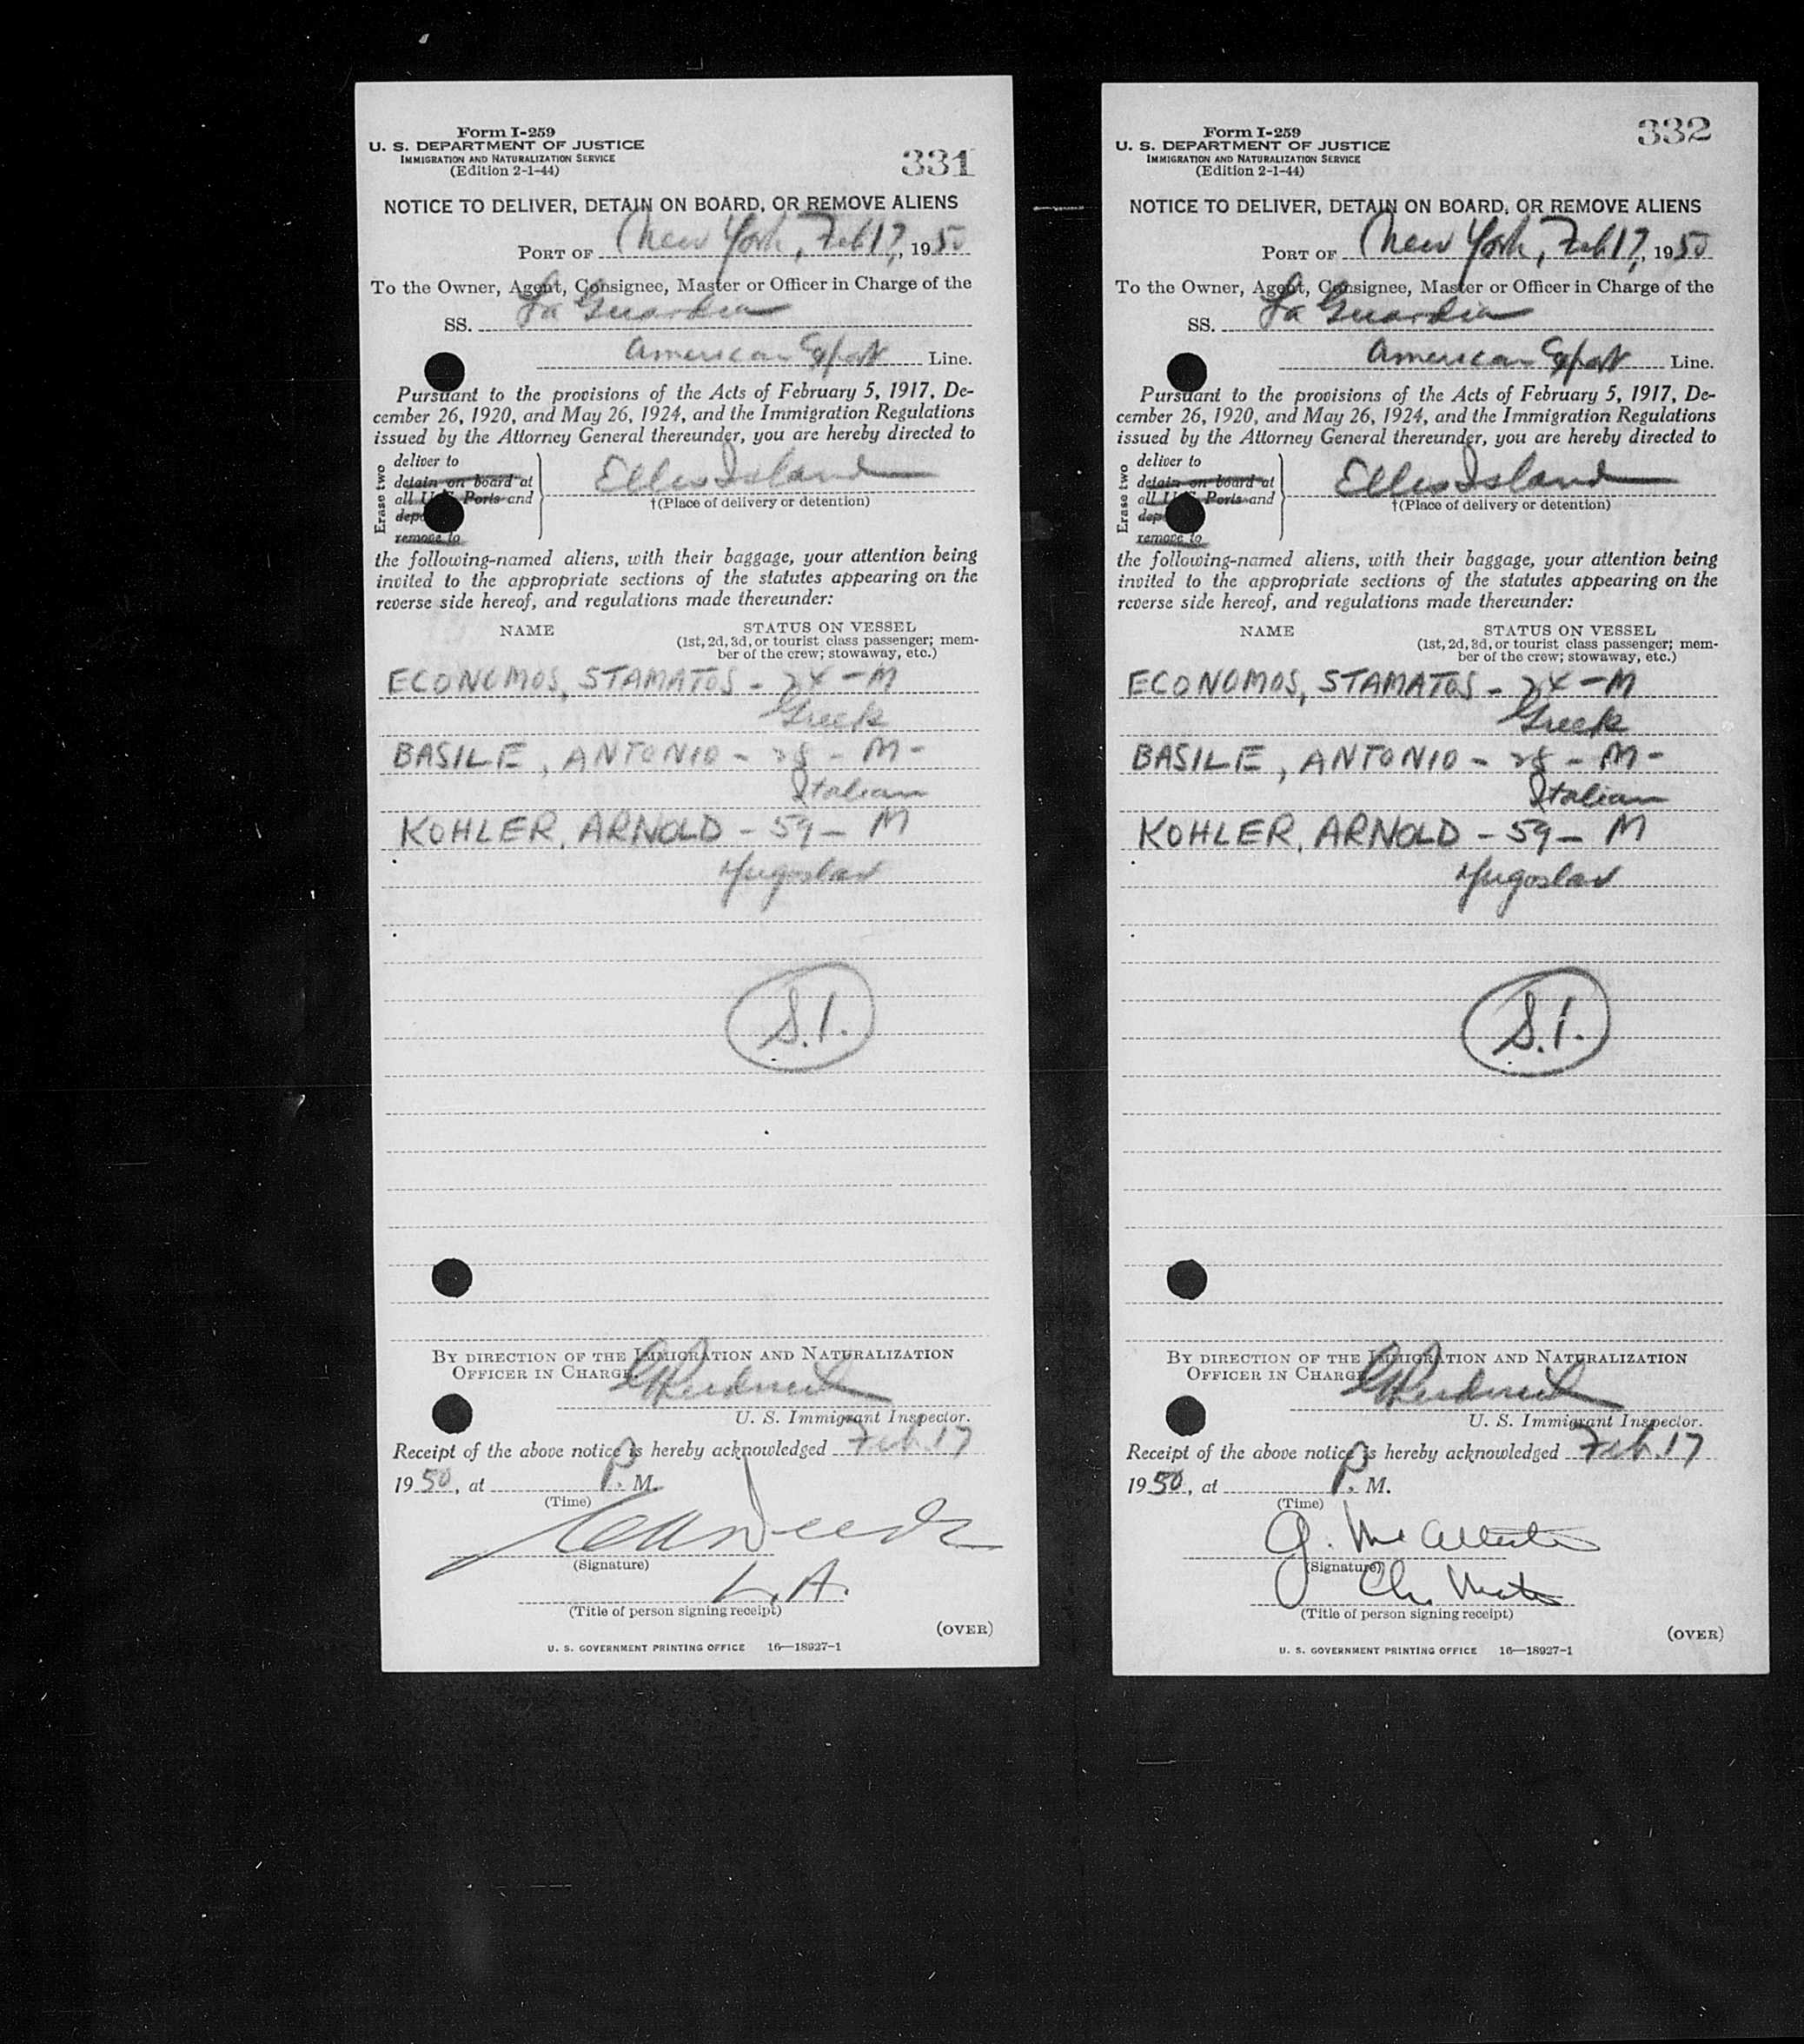 Form I-259
U. S. DEPARTMENT OF JUSTICE
IMMIGRATION AND NATURALIZATION SERVICE
(Edition 2-1-44)
331
NOTICE TO DELIVER, DETAIN ON BOARD, OR REMOVE ALIENS
PORT OF New York, Feb 17, 1950
To the Owner, Agent, Consignee, Master or Officer in Charge of the
SS. La Guardia
American Export Line.
Pursuant to the provisions of the Acts of February 5, 1917, De-
cember 26, 1920, and May 26, 1924, and the Immigration Regulations
issued by the Attorney General thereunder, you are hereby directed to
Erase two
deliver to
detain on board at
all U.S. Ports and
remove to
Ellis Island
†(Place of delivery or detention)
the following-named aliens, with their baggage, your attention being
invited to the appropriate sections of the statutes appearing on the
reverse side hereof, and regulations made thereunder:
NAME STATUS ON VESSEL
(1st, 2d, 3d, or tourist class passenger; mem-
ber of the crew; stowaway, etc.)
ECONOMOS, STAMATOS - 24 - M
Greek
BASILE, ANTONIO - 28 - M -
Italian
KOHLER, ARNOLD - 59 - M
Yugoslav
S.I.
BY DIRECTION OF THE IMMIGRATION AND NATURALIZATION
OFFICER IN CHARGE.
U. S. Immigrant Inspector.
Receipt of the above notice is hereby acknowledged Feb. 17
1950, at P. M.
(Time)
(Signature)
L.A.
(Title of person signing receipt)
(OVER)
U. S. GOVERNMENT PRINTING OFFICE 16—18927-1
Form I-259
U. S. DEPARTMENT OF JUSTICE
IMMIGRATION AND NATURALIZATION SERVICE
(Edition 2-1-44)
332
NOTICE TO DELIVER, DETAIN ON BOARD, OR REMOVE ALIENS
PORT OF New York, Feb 17, 1950
To the Owner, Agent, Consignee, Master or Officer in Charge of the
SS. La Guardia
American Export Line.
Pursuant to the provisions of the Acts of February 5, 1917, De-
cember 26, 1920, and May 26, 1924, and the Immigration Regulations
issued by the Attorney General thereunder, you are hereby directed to
Erase two
deliver to
detain on board at
all U.S. Ports and
remove to
Ellis Island
†(Place of delivery or detention)
the following-named aliens, with their baggage, your attention being
invited to the appropriate sections of the statutes appearing on the
reverse side hereof, and regulations made thereunder:
NAME STATUS ON VESSEL
(1st, 2d, 3d, or tourist class passenger; mem-
ber of the crew; stowaway, etc.)
ECONOMOS, STAMATOS - 24 - M
Greek
BASILE, ANTONIO - 28 - M -
Italian
KOHLER, ARNOLD - 59 - M
Yugoslav
S.I.
BY DIRECTION OF THE IMMIGRATION AND NATURALIZATION
OFFICER IN CHARGE.
U. S. Immigrant Inspector.
Receipt of the above notice is hereby acknowledged Feb. 17
1950, at P. M.
(Time)
(Signature)
Ch. Mate
(Title of person signing receipt)
(OVER)
U. S. GOVERNMENT PRINTING OFFICE 16—18927-1